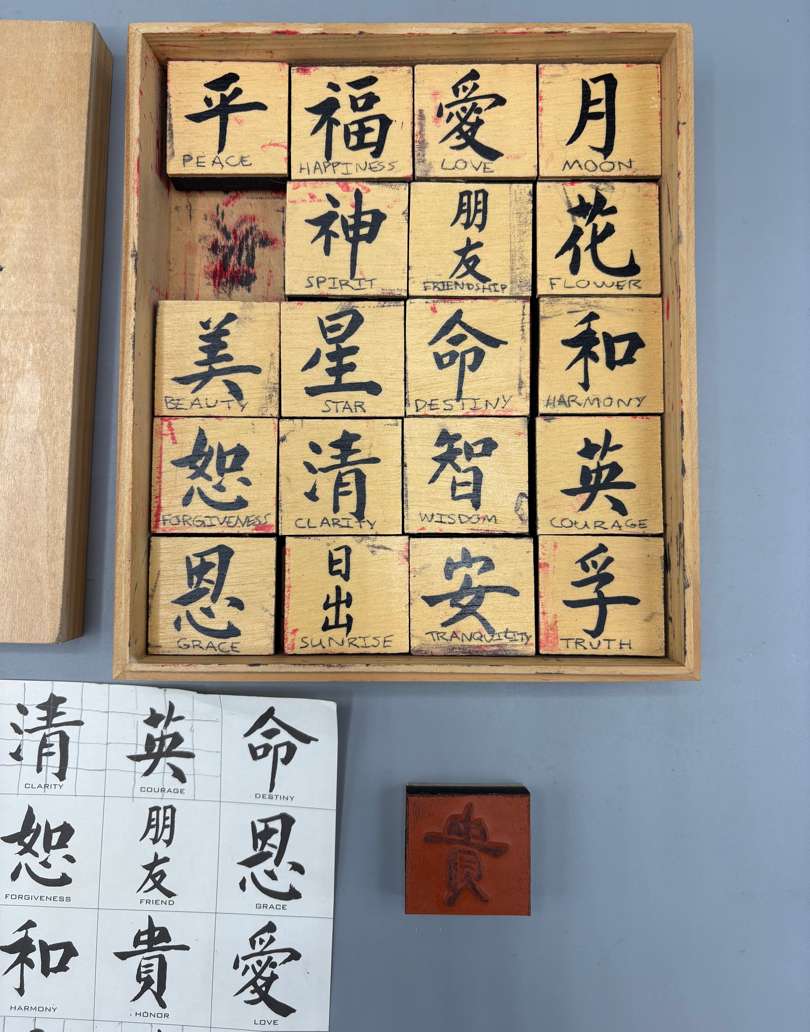 平
PEACE
福
HAPPINESS
愛
LOVE
月
MOON
神
SPIRIT
朋
友
FRIENDSHIP
花
FLOWER
美
BEAUTY
星
STAR
命
DESTINY
和
HARMONY
恕
FORGIVENESS
清
CLARITY
智
WISDOM
英
COURAGE
恩
GRACE
日
出
SUNRISE
安
TRANQUILITY
孚
TRUTH
清
CLARITY
英
COURAGE
命
DESTINY
恕
FORGIVENESS
朋
友
FRIEND
恩
GRACE
和
HARMONY
貴
HONOR
愛
LOVE
貴